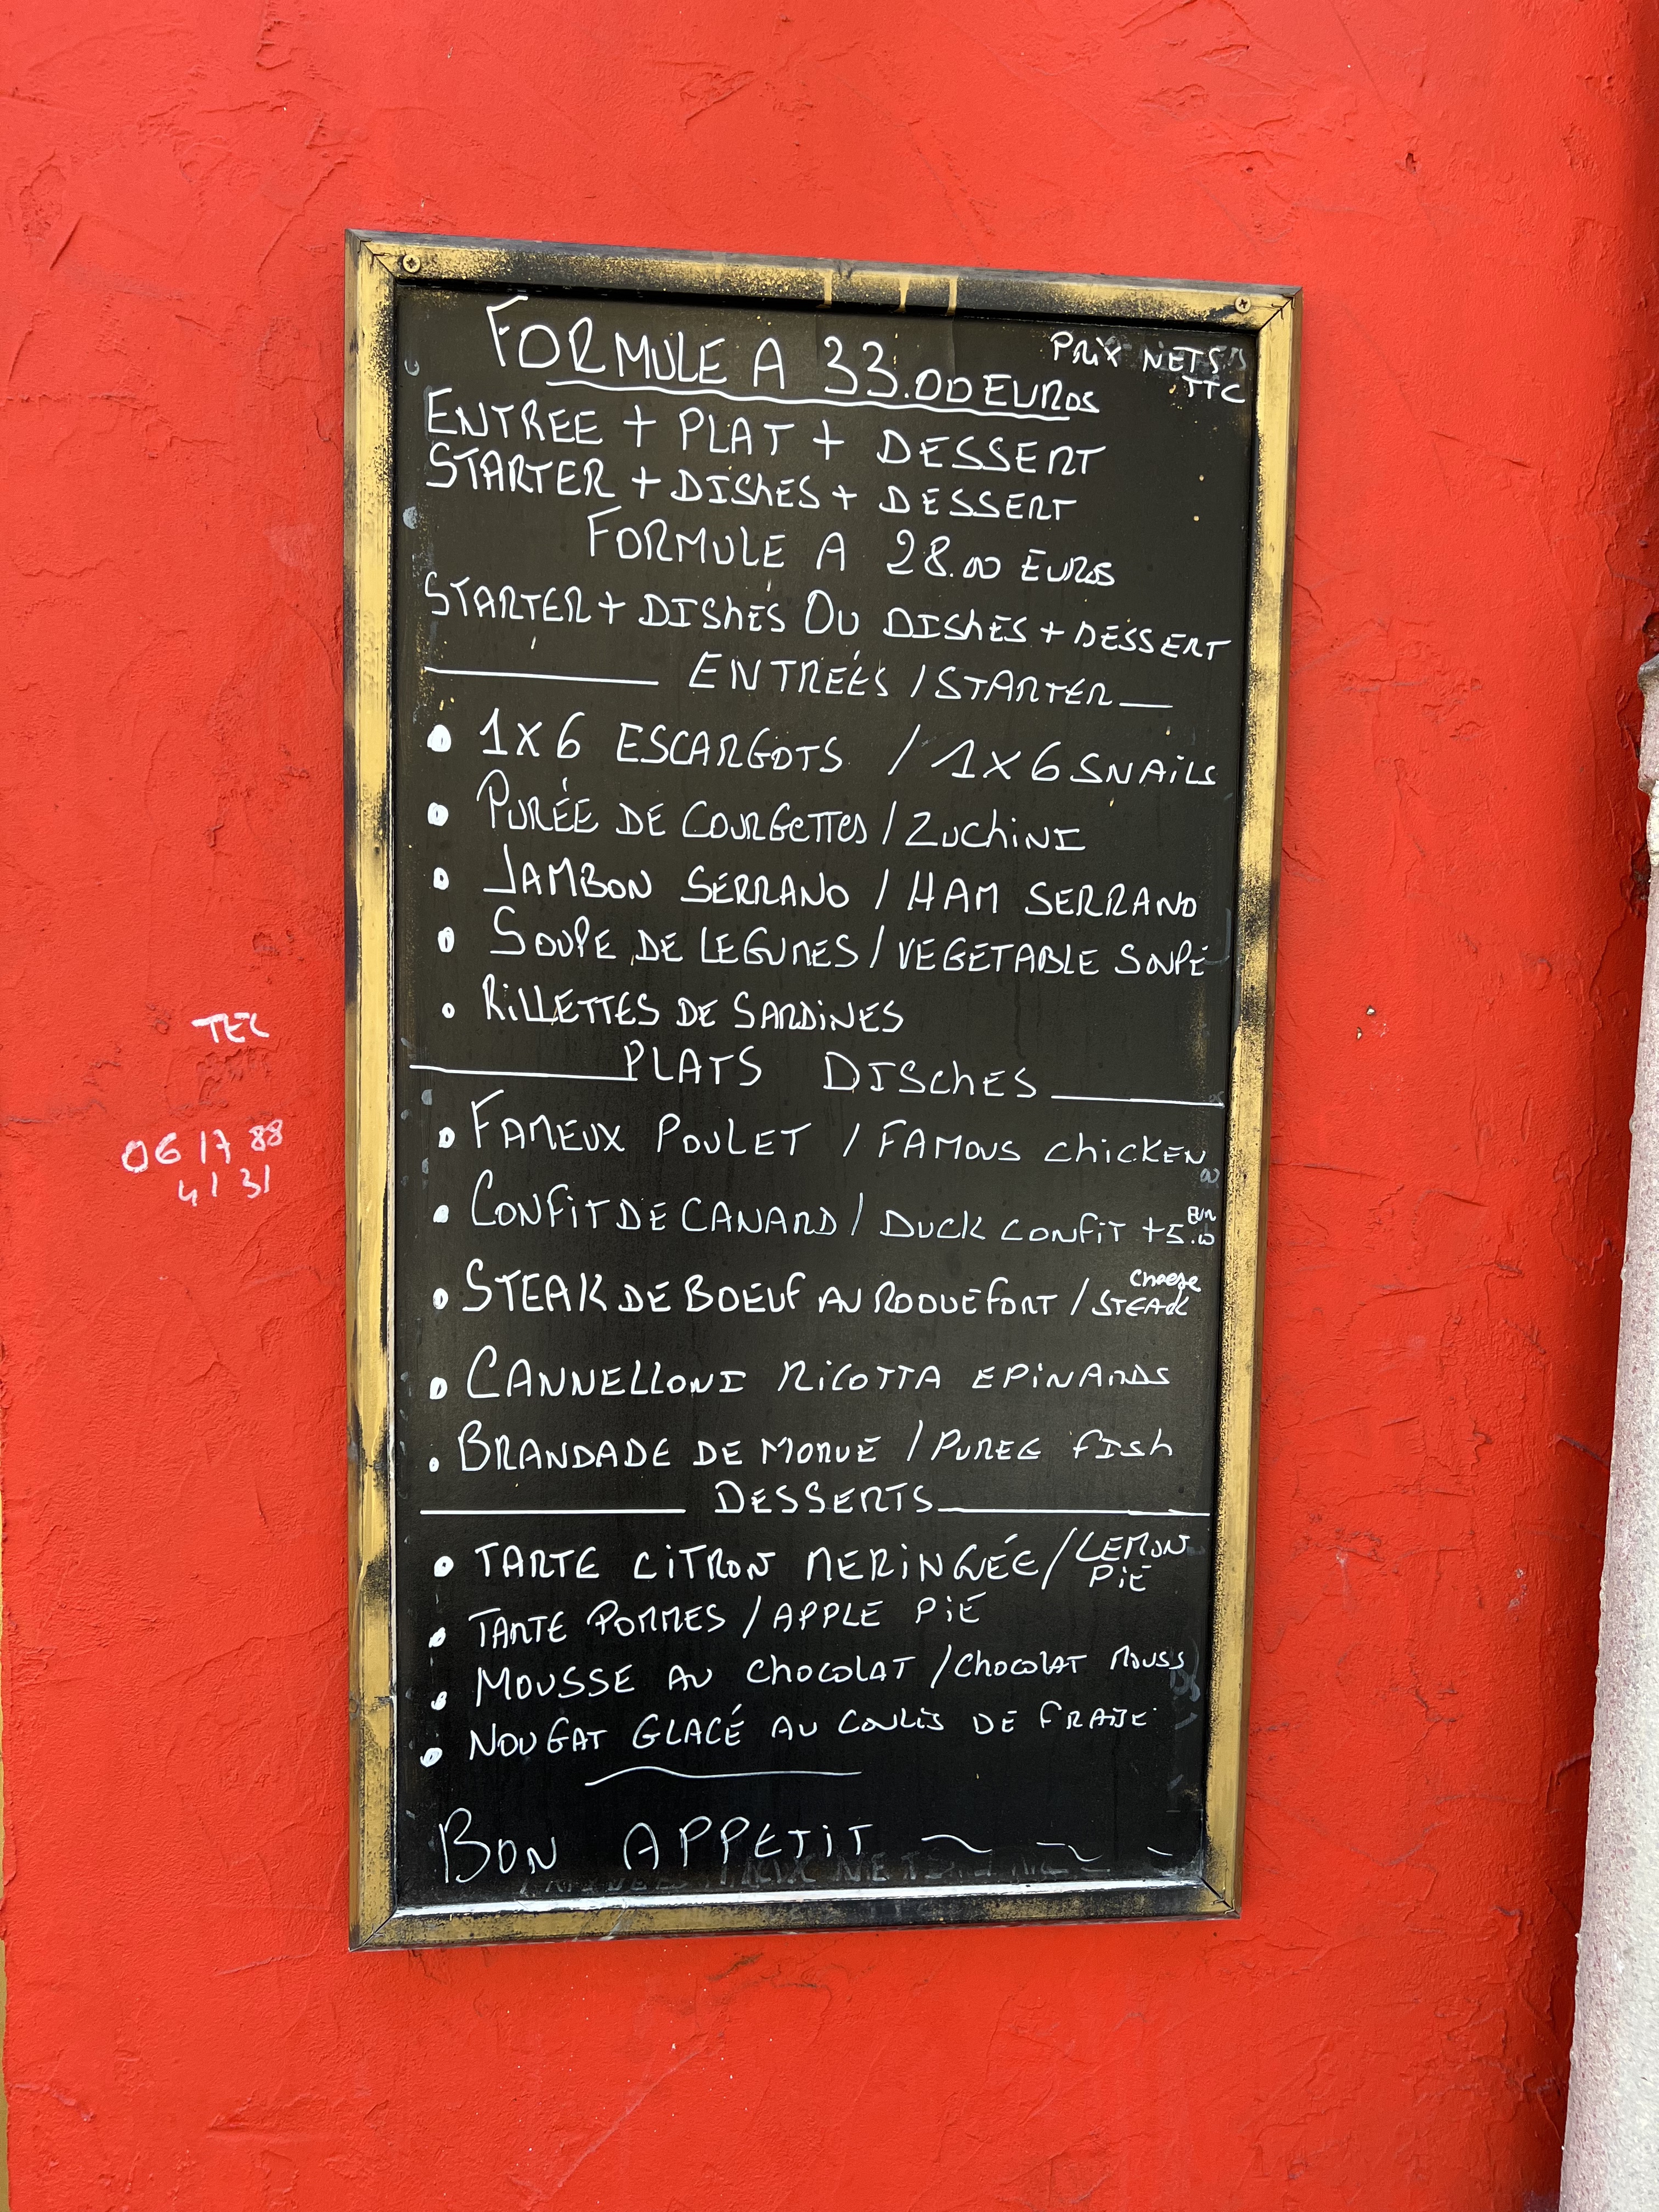 FORMULE A 33.00 EUROS
PRIX NETS
TTC
ENTREE + PLAT + DESSERT
STARTER + DISHES + DESSERT
FORMULE A 28.00 EUROS
STARTER + DISHES OU DISHES + DESSERT
ENTREES / STARTER
1X6 ESCARGOTS / 1X6 SNAILS
PURÉE DE COURGETTES / ZUCHINI
JAMBON SERRANO / HAM SERRANO
SOUPE DE LEGUMES / VEGETABLE SOUPE
RILLETTES DE SARDINES
PLATS DISCHES
FAMEUX POULET / FAMOUS CHICKEN
CONFIT DE CANARD / DUCK CONFIT +5.00 EUR
STEAK DE BOEUF AU ROQUEFORT / CHEESE STEACK
CANNELLONI RICOTTA EPINARDS
BRANDADE DE MORUE / PUREE FISH
DESSERTS
TARTE CITRON MERINGUÉE / LEMON PIE
TARTE POMMES / APPLE PIE
MOUSSE AU CHOCOLAT / CHOCOLAT MOUSS
NOUGAT GLACÉ AU COULIS DE FRAISE
BON APPETIT
TEL
06 17 88
41 31